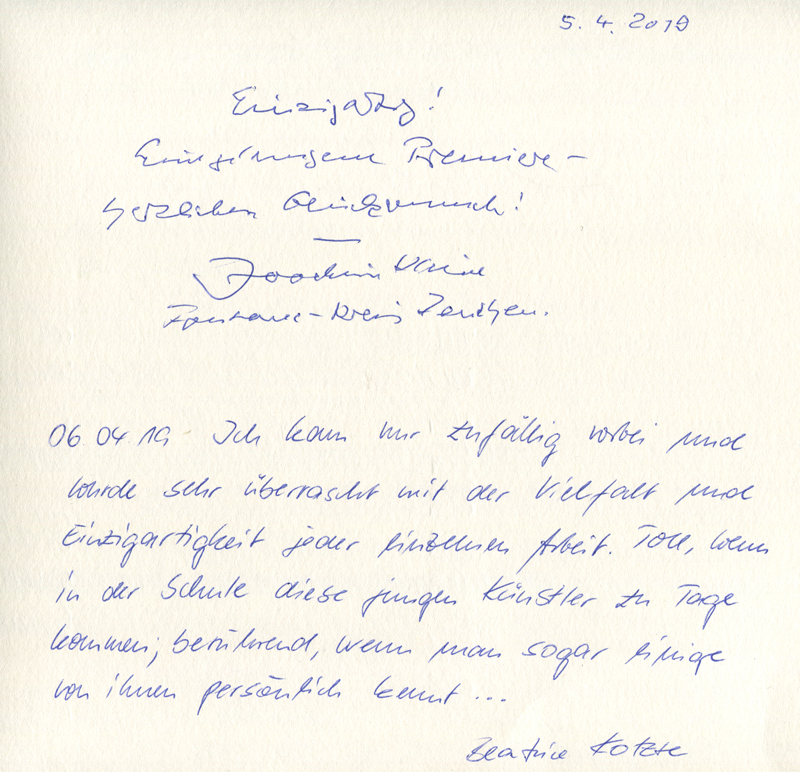 5. 4. 2019
Einzigartig!
Premiere –
herzlichen Glückwunsch!
Joachim Kleine
Fontane-Kreis Zeuthen.
06 04 19 Ich kam nur zufällig vorbei und
wurde sehr überrascht mit der Vielfalt und
Einzigartigkeit jeder einzelnen Arbeit. Toll, wenn
in der Schule diese jungen Künstler zu Tage
kommen; berührend, wenn man sogar einige
von ihnen persönlich kennt ...
Beatrice Kotzte